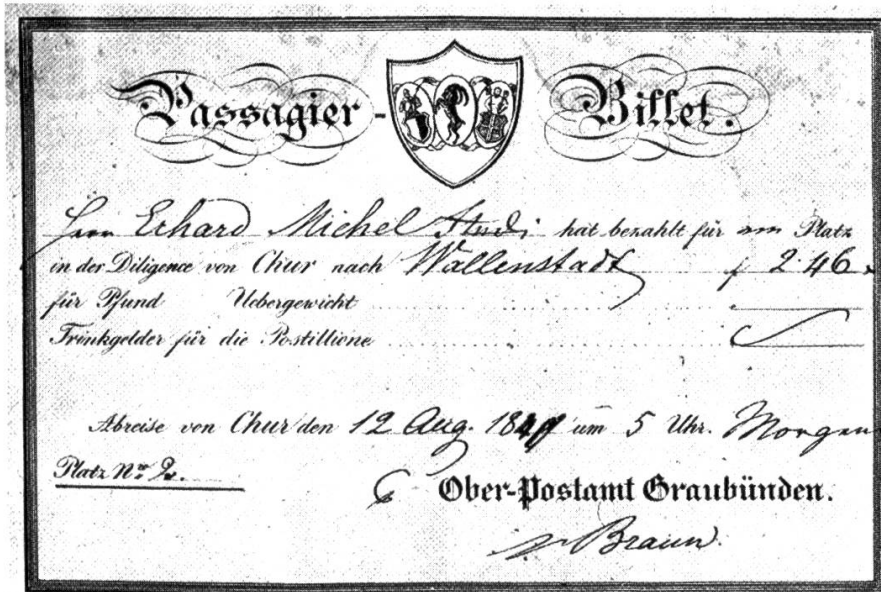 Passagier - Billet.
Herr Erhard Michel hat bezahlt für Platz
in der Diligence von Chur nach Wallenstadt f 2.46.
für Pfund Uebergewicht
Trinkgelder für die Postillione
Abreise von Chur den 12 Aug. 18 um 5 Uhr. Morgen
Platz No. 2.
Ober-Postamt Graubünden.
Braun.